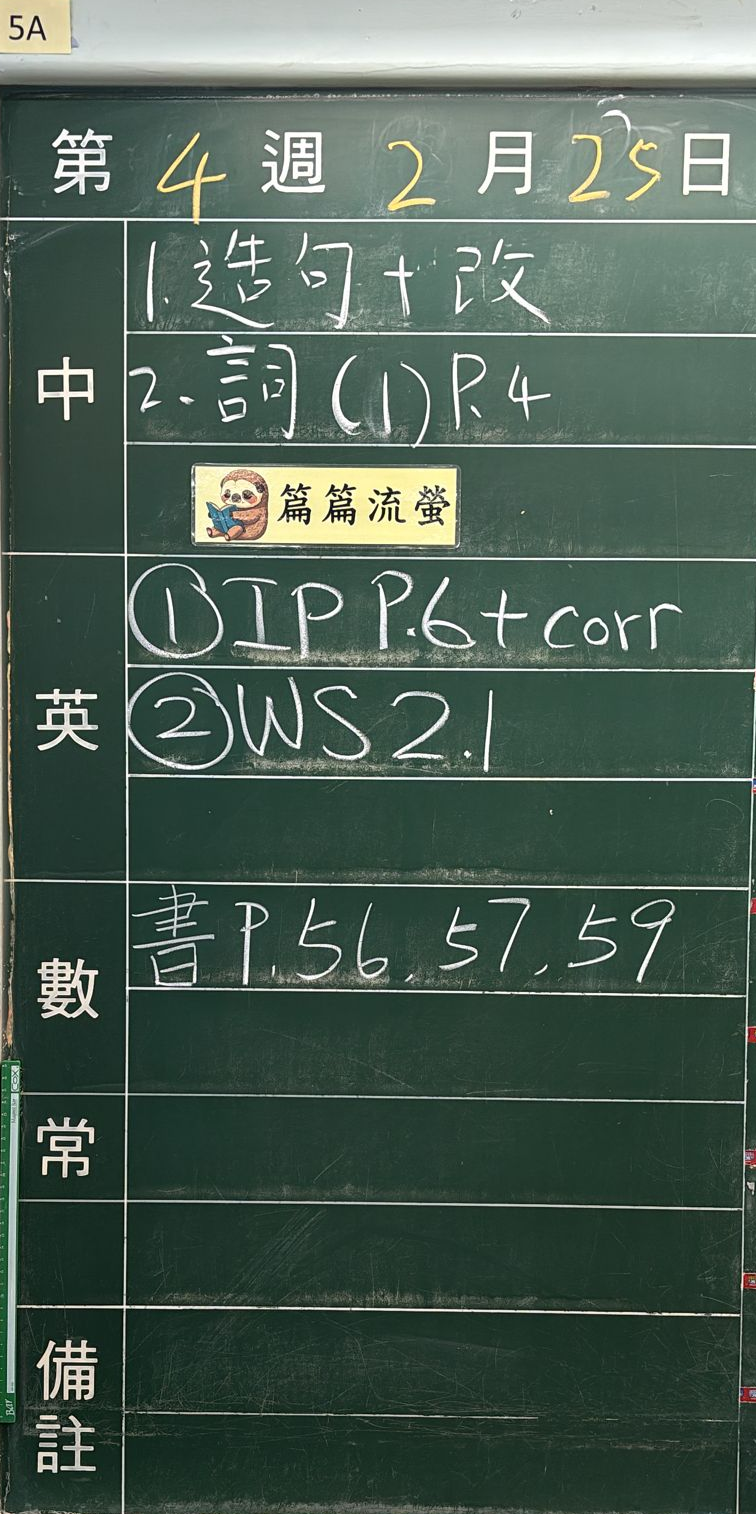 5A
第 4 週 2 月 25 日
中
1. 造句 + 改
2. 詞 (1) P.4
篇篇流螢
英
① IP P.6 + corr
② WS 2.1
數
書 P.56, 57, 59
常
備註